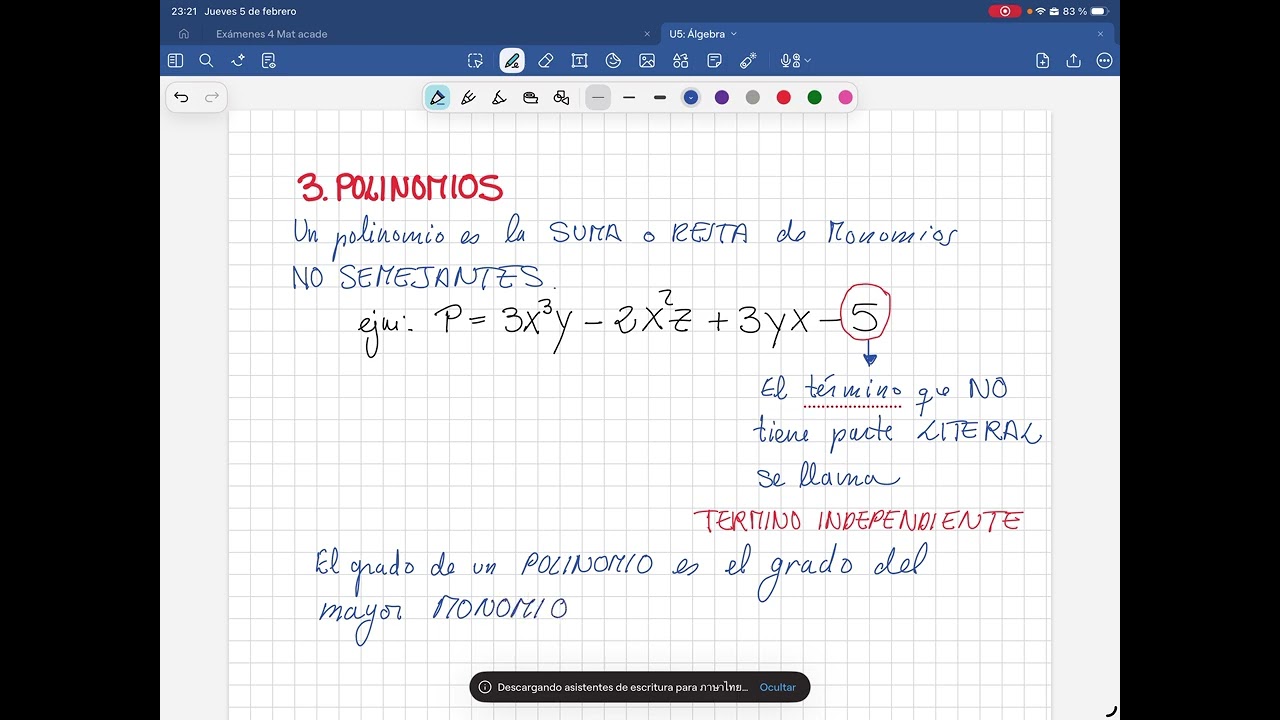 23:21 Jueves 5 de febrero
83 %
Exámenes 4 Mat acade
U5: Álgebra
3. POLINOMIOS
Un polinomio es la SUMA o RESTA de Monomios
NO SEMEJANTES.
ejm: P = 3x³y - 2x²z + 3yx - 5
El término que NO
tiene parte LITERAL
se llama
TERMINO INDEPENDIENTE
El grado de un POLINOMIO es el grado del
mayor MONOMIO
Descargando asistentes de escritura para ภาษาไทย... Ocultar